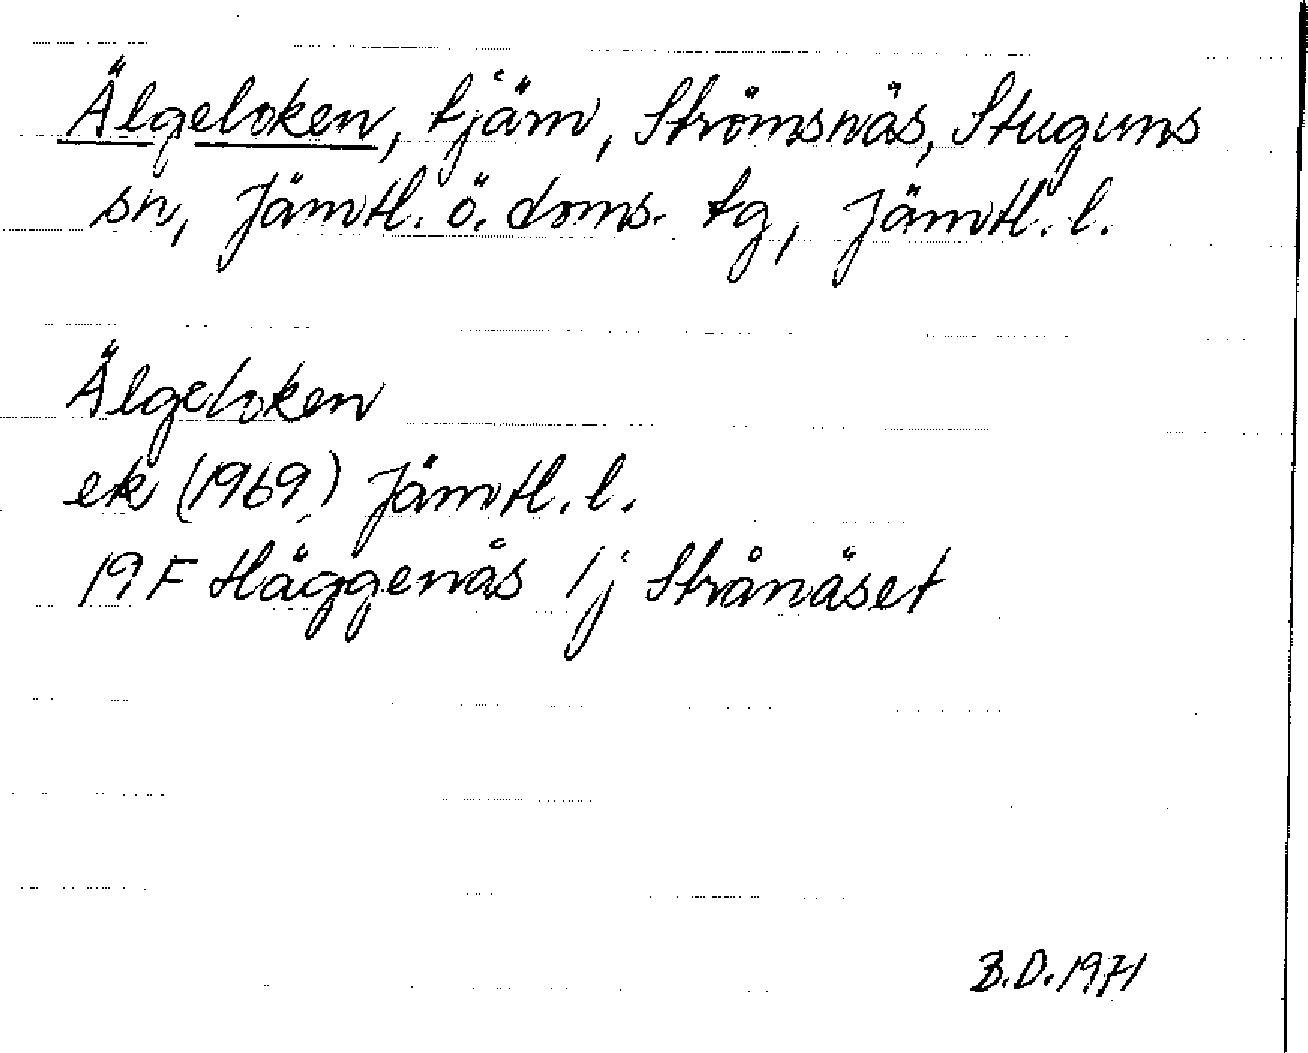 Älgeloken, tjärn, Strömsnäs, Stuguns
sn, Jämtl. ö. doms. tg, Jämtl. l.
Älgeloken
ek (1969) Jämtl. l.
19 F Häggenås 1j Strånäset
B.D. 1971